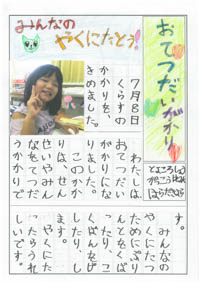 みんなの
やくにたとう!
おてつだいがかり
7月8日
くらすの
かかりを、
きめました。
わたしは、
おてつだい
がかりになり
ました。
このかか
りは、せん
せいやみん
なをてつだ
うかかりで
す。
みんなの
やくにたつ
ためにぷり
んとをくば
ったり、こ
くばんをけ
したりし
ます。
やくにた
ったらうれ
しいです。